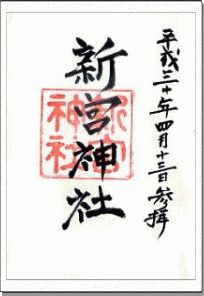 平成三十年四月十三日参拝
新宮神社
新宮神社